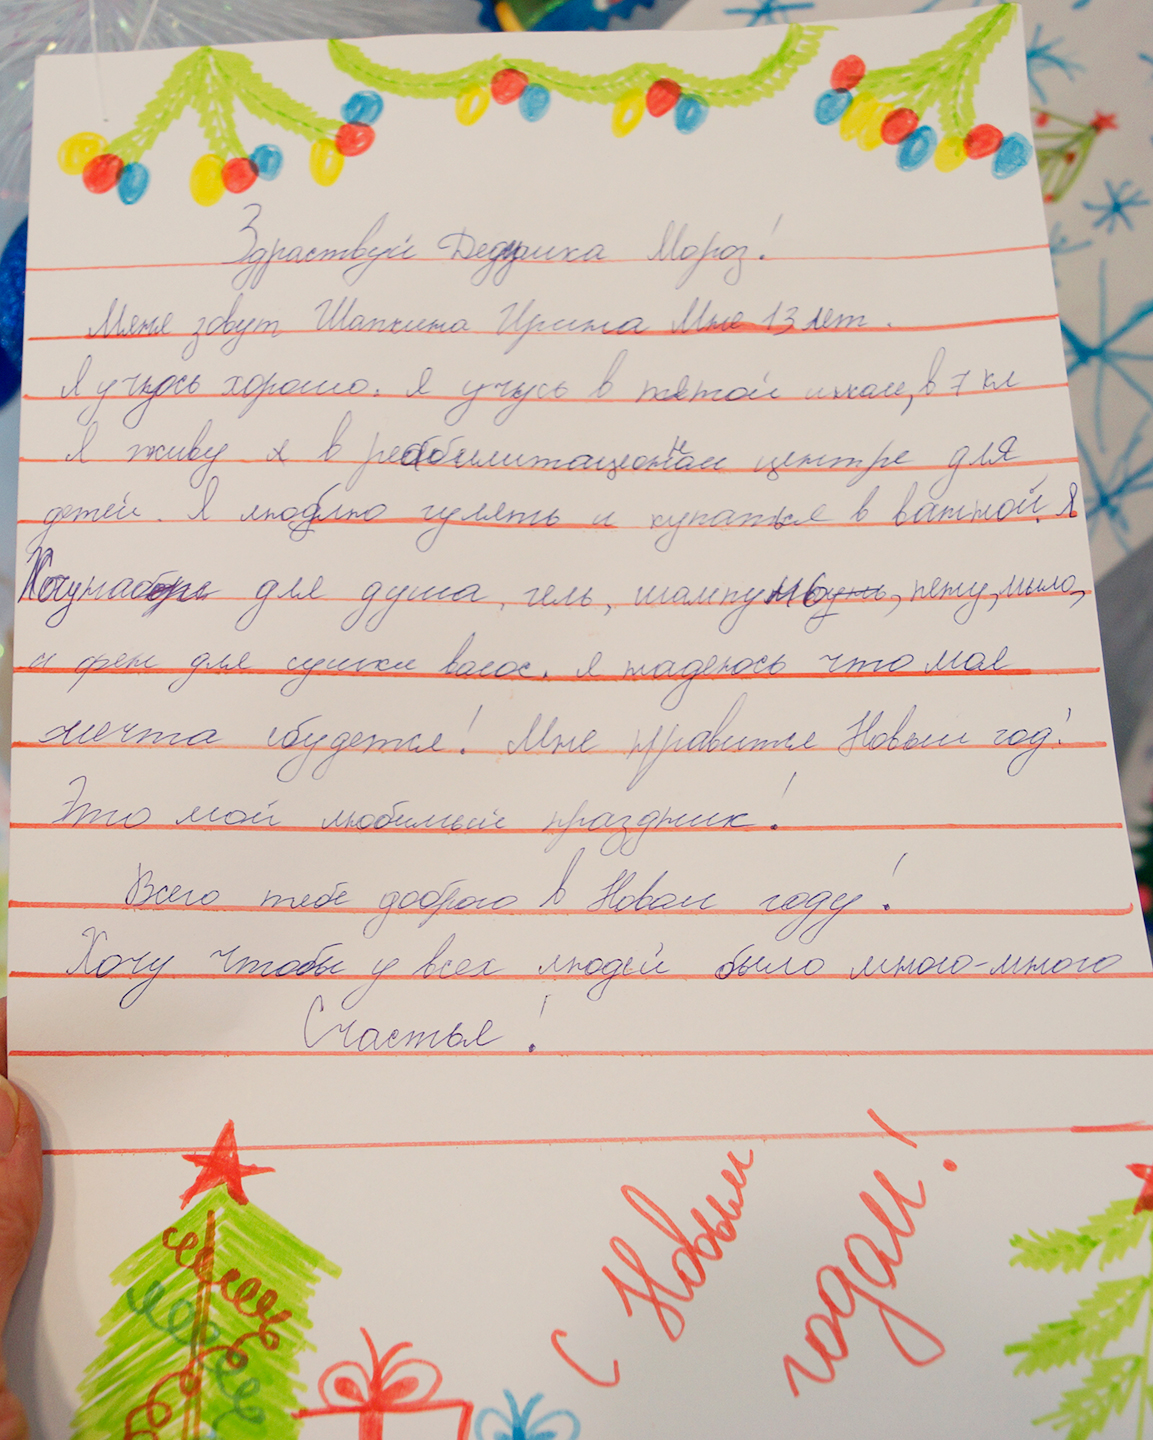 Здраствуй Дедушка Мороз!
Меня зовут Шапкина Ирина Мне 13 лет.
Я учусь хорошо. Я учусь в пятой школе, в 7 кл
Я живу я в реабилитационном центре для
детей. Я люблю гулять и купаться в ванной. Я
Хочу набор для душа, гель, шампунь, пену, мыло,
и фен для сушки волос. Я надеюсь что моя
мечта сбудется! Мне нравится Новый год!
Это мой любимый праздник!
Всего тебе доброго в Новом году!
Хочу чтобы у всех людей было много-много
Счастья!
С Новым
годом!